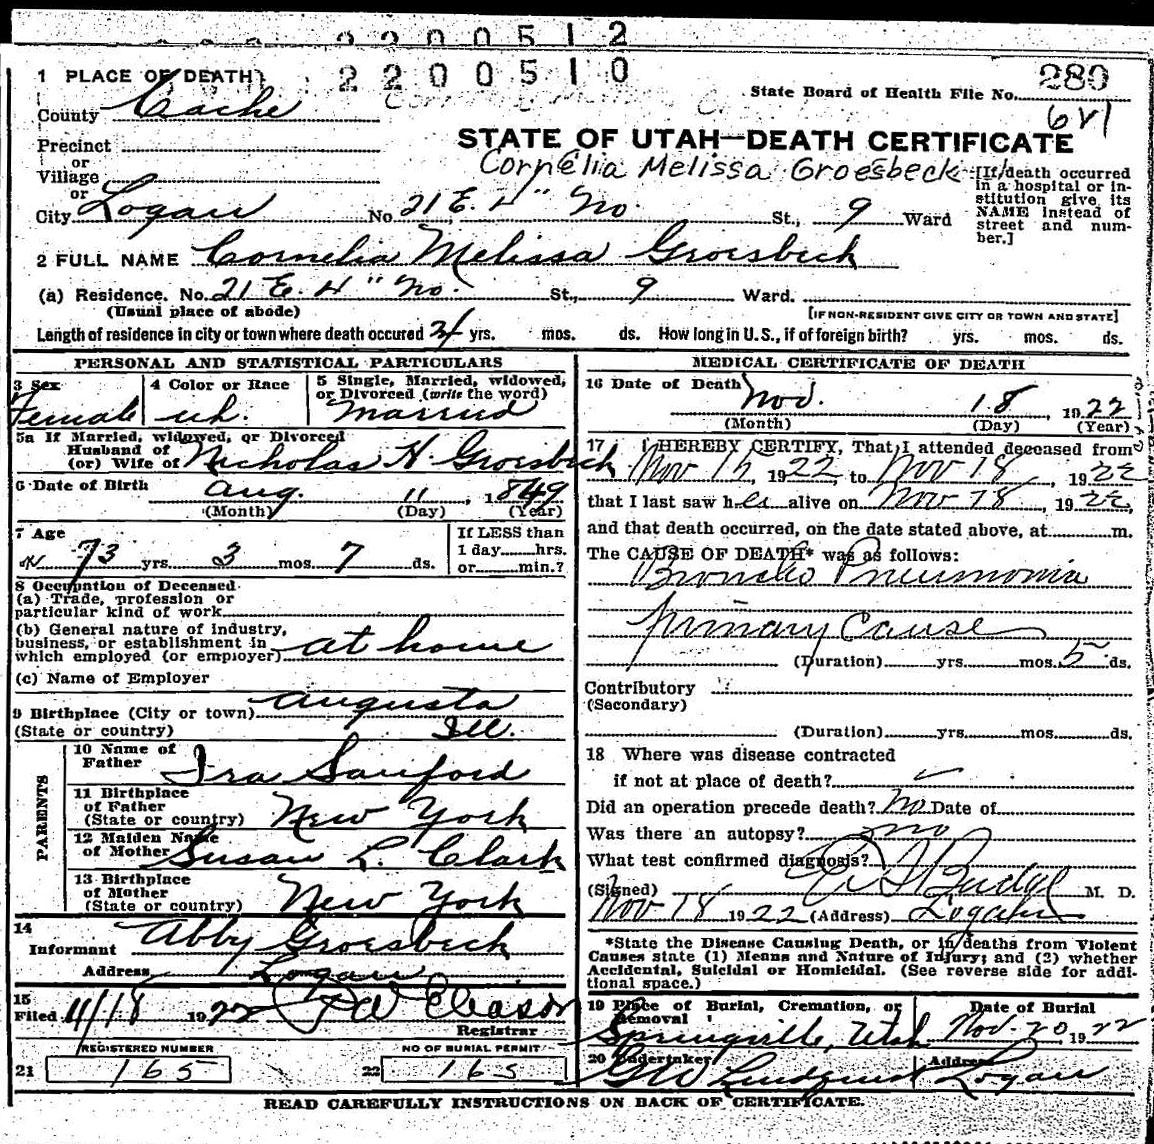 2200512
2200510
1 PLACE OF DEATH
County Cache
State Board of Health File No. 280
Precinct
or
Village
or
City Logan No. 21 E. 4" No. St., 9 Ward
STATE OF UTAH—DEATH CERTIFICATE
Cornelia Melissa Groesbeck
[If death occurred in a hospital or institution give its NAME instead of street and number.]
2 FULL NAME Cornelia Melissa Groesbeck
(a) Residence. No. 21 E. 4" No. St., 9 Ward.
(Usual place of abode)
[IF NON-RESIDENT GIVE CITY OR TOWN AND STATE]
Length of residence in city or town where death occured yrs. mos. ds. How long in U.S., if of foreign birth? yrs. mos. ds.
PERSONAL AND STATISTICAL PARTICULARS
3 Sex Female
4 Color or Race wh.
5 Single, Married, widowed, or Divorced (write the word) Married
5a If Married, widowed, or Divorced
Husband of
(or) Wife of Nicholas H. Groesbeck
6 Date of Birth Aug. 11, 1849
(Month) (Day) (Year)
7 Age 73 yrs. 3 mos. 7 ds.
If LESS than
1 day......hrs.
or......min.?
8 Occupation of Deceased
(a) Trade, profession or
particular kind of work
(b) General nature of industry,
business, or establishment in
which employed (or employer) at home
(c) Name of Employer
9 Birthplace (City or town) Augusta
(State or country) Ill.
PARENTS
10 Name of
Father Ira Sanford
11 Birthplace
of Father
(State or country) New York
12 Maiden Name
of Mother Susan L. Clark
13 Birthplace
of Mother
(State or country) New York
14
Informant Abby Groesbeck
Address Logan
15
Filed 11/18 1922 Eliason
Registrar
REGISTERED NUMBER
21 165
NO OF BURIAL PERMIT
22 165
MEDICAL CERTIFICATE OF DEATH
16 Date of Death Nov. 18, 1922
(Month) (Day) (Year)
17 I HEREBY CERTIFY, That I attended deceased from
Nov 1922, to Nov 18, 1922
that I last saw her alive on Nov 18, 1922,
and that death occurred, on the date stated above, at......m.
The CAUSE OF DEATH* was as follows:
Broncho Pneumonia
primary cause
(Duration) yrs. mos. 5 ds.
Contributory
(Secondary)
(Duration) yrs. mos. ds.
18 Where was disease contracted
if not at place of death?
Did an operation precede death? No Date of
Was there an autopsy? no
What test confirmed diagnosis?
(Signed) Budge M. D.
Nov 18 1922 (Address) Logan
*State the Disease Causing Death, or in deaths from Violent
Causes state (1) Means and Nature of Injury; and (2) whether
Accidental, Suicidal or Homicidal. (See reverse side for addi-
tional space.)
19 Place of Burial, Cremation, or
Removal Springville, Utah
Date of Burial
Nov. 20, 1922
20 Undertaker GW Lindquist
Address Logan
READ CAREFULLY INSTRUCTIONS ON BACK OF CERTIFICATE.